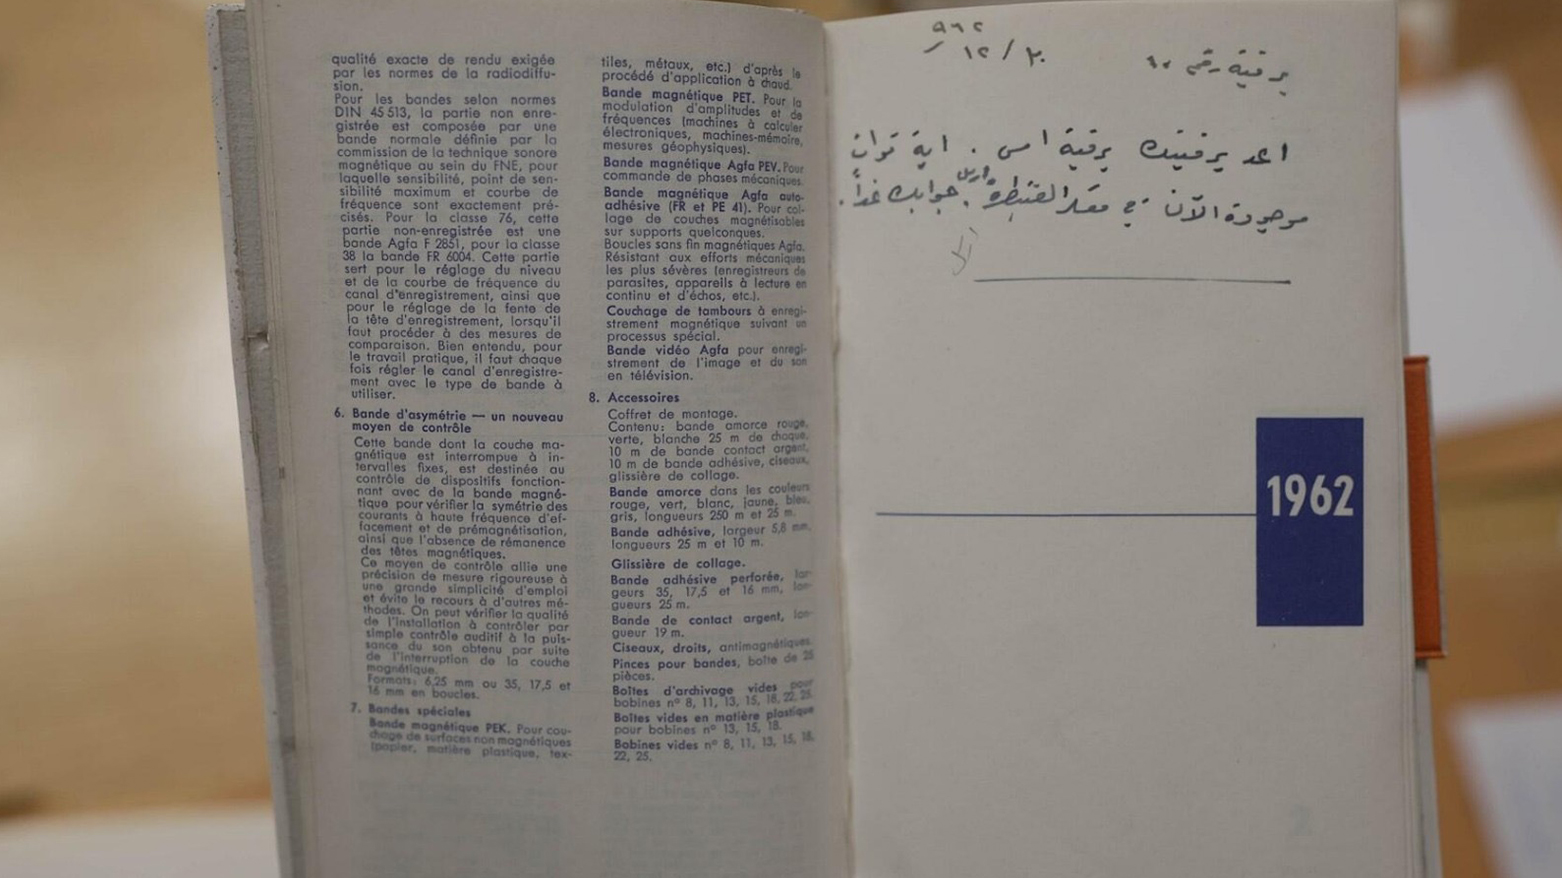 qualité exacte de rendu exigée
par les normes de la radiodiffu-
sion.
Pour les bandes selon normes
DIN 45 513, la partie non enre-
gistrée est composée par une
bande normale définie par la
commission de la technique sonore
magnétique au sein du FNE, pour
laquelle sensibilité, point de sen-
sibilité maximum et courbe de
fréquence sont exactement pré-
cisés. Pour la classe 76, cette
partie non-enregistrée est une
bande Agfa F 2851, pour la classe
38 la bande FR 6004. Cette partie
sert pour le réglage du niveau
et de la courbe de fréquence du
canal d'enregistrement, ainsi que
pour le réglage de la fente de
la tête d'enregistrement, lorsqu'il
faut procéder à des mesures de
comparaison. Bien entendu, pour
le travail pratique, il faut chaque
fois régler le canal d'enregistre-
ment avec le type de bande à
utiliser.
6. Bande d'asymétrie — un nouveau
moyen de contrôle
Cette bande dont la couche ma-
gnétique est interrompue à in-
tervalles fixes, est destinée au
contrôle de dispositifs fonction-
nant avec de la bande magné-
tique pour vérifier la symétrie des
courants à haute fréquence d'ef-
facement et de prémagnétisation,
ainsi que l'absence de rémanence
des têtes magnétiques.
Ce moyen de contrôle allie une
précision de mesure rigoureuse à
une grande simplicité d'emploi
et évite le recours à d'autres mé-
thodes. On peut vérifier la qualité
de l'installation à contrôler par
simple contrôle auditif à la puis-
sance du son obtenu par suite
de l'interruption de la couche
magnétique.
Formats: 6,25 mm ou 35, 17,5 et
16 mm en boucles.
7. Bandes spéciales
Bande magnétique PEK. Pour cou-
chage de surfaces non magnétiques
(papier, matière plastique, tex-
tiles, métaux, etc.) d'après le
procédé d'application à chaud.
Bande magnétique PET. Pour la
modulation d'amplitudes et de
fréquences (machines à calculer
électroniques, machines-mémoire,
mesures géophysiques).
Bande magnétique Agfa PEV. Pour
commande de phases mécaniques.
Bande magnétique Agfa auto-
adhésive (FR et PE 41). Pour col-
lage de couches magnétisables
sur supports quelconques.
Boucles sans fin magnétiques Agfa.
Résistant aux efforts mécaniques
les plus sévères (enregistreurs de
parasites, appareils à lecture en
continu et d'échos, etc.).
Couchage de tambours à enregi-
strement magnétique suivant un
processus spécial.
Bande vidéo Agfa pour enregi-
strement de l'image et du son
en télévision.
8. Accessoires
Coffret de montage.
Contenu: bande amorce rouge,
verte, blanche 25 m de chaque,
10 m de bande contact argent,
10 m de bande adhésive, ciseaux,
glissière de collage.
Bande amorce dans les couleurs
rouge, vert, blanc, jaune, bleu,
gris, longueurs 250 m et 25 m.
Bande adhésive, largeur 5,8 mm,
longueurs 25 m et 10 m.
Glissière de collage.
Bande adhésive perforée, lar-
geurs 35, 17,5 et 16 mm, lon-
gueurs 25 m.
Bande de contact argent, lon-
gueur 19 m.
Ciseaux, droits, antimagnétiques.
Pinces pour bandes, boîte de 25
pièces.
Boîtes d'archivage vides pour
bobines nº 8, 11, 13, 15, 18, 22, 25.
Boîtes vides en matière plastique
pour bobines nº 13, 15, 18.
Bobines vides nº 8, 11, 13, 15, 18,
22, 25.
برقية رقم
اعد برقيتك برقية امس. اية قوات
موجودة الآن في معسكر القنيطرة. جوابك غداً.
1962